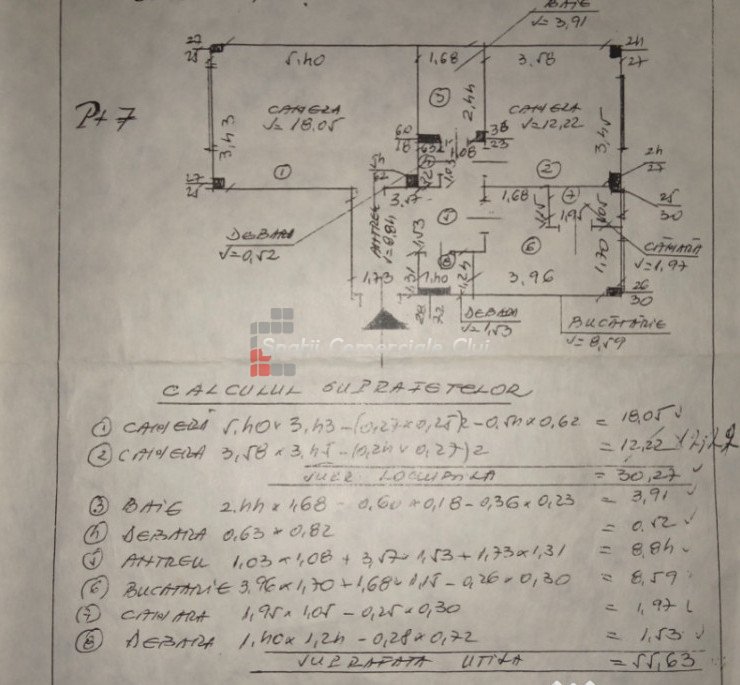 BAIE
S=3,91
27
25
5,40
1,68
3,58
24
27
Pt 7
CAMERA
S=18,05
3,43
①
③
2,44
CAMERA
S=12,22
3,45
60
18
36
23
1,08
②
24
27
3,57
1,68
⑦
1,95
1,05
25
30
DEBARA
S=0,52
ANTREU
S=8,84
1,53
⑤
⑥
1,70
CĂMARĂ
S=1,97
1,73
1,31
1,40
⑧
1,24
3,96
26
30
28
72
DEBARA
S=1,53
BUCĂTĂRIE
S=8,59
Spatii Comerciale Cluj
CALCULUL SUPRAFETELOR
① CAMERĂ 5,40 x 3,43 - (0,27 x 0,25)2 - 0,54 x 0,62 = 18,05
② CAMERĂ 3,58 x 3,45 - (0,24 x 0,27)2 = 12,22
SUPR. LOCUIBILA = 30,27
③ BAIE 2,44 x 1,68 - 0,60 x 0,18 - 0,36 x 0,23 = 3,91
④ DEBARA 0,63 x 0,82 = 0,52
⑤ ANTREU 1,03 x 1,08 + 3,57 x 1,53 + 1,73 x 1,31 = 8,84
⑥ BUCATARIE 3,96 x 1,70 + 1,68 x 1,15 - 0,26 x 0,30 = 8,59
⑦ CAMARA 1,95 x 1,05 - 0,25 x 0,30 = 1,97
⑧ DEBARA 1,40 x 1,24 - 0,28 x 0,72 = 1,53
SUPRAFATA UTILA = 55,63